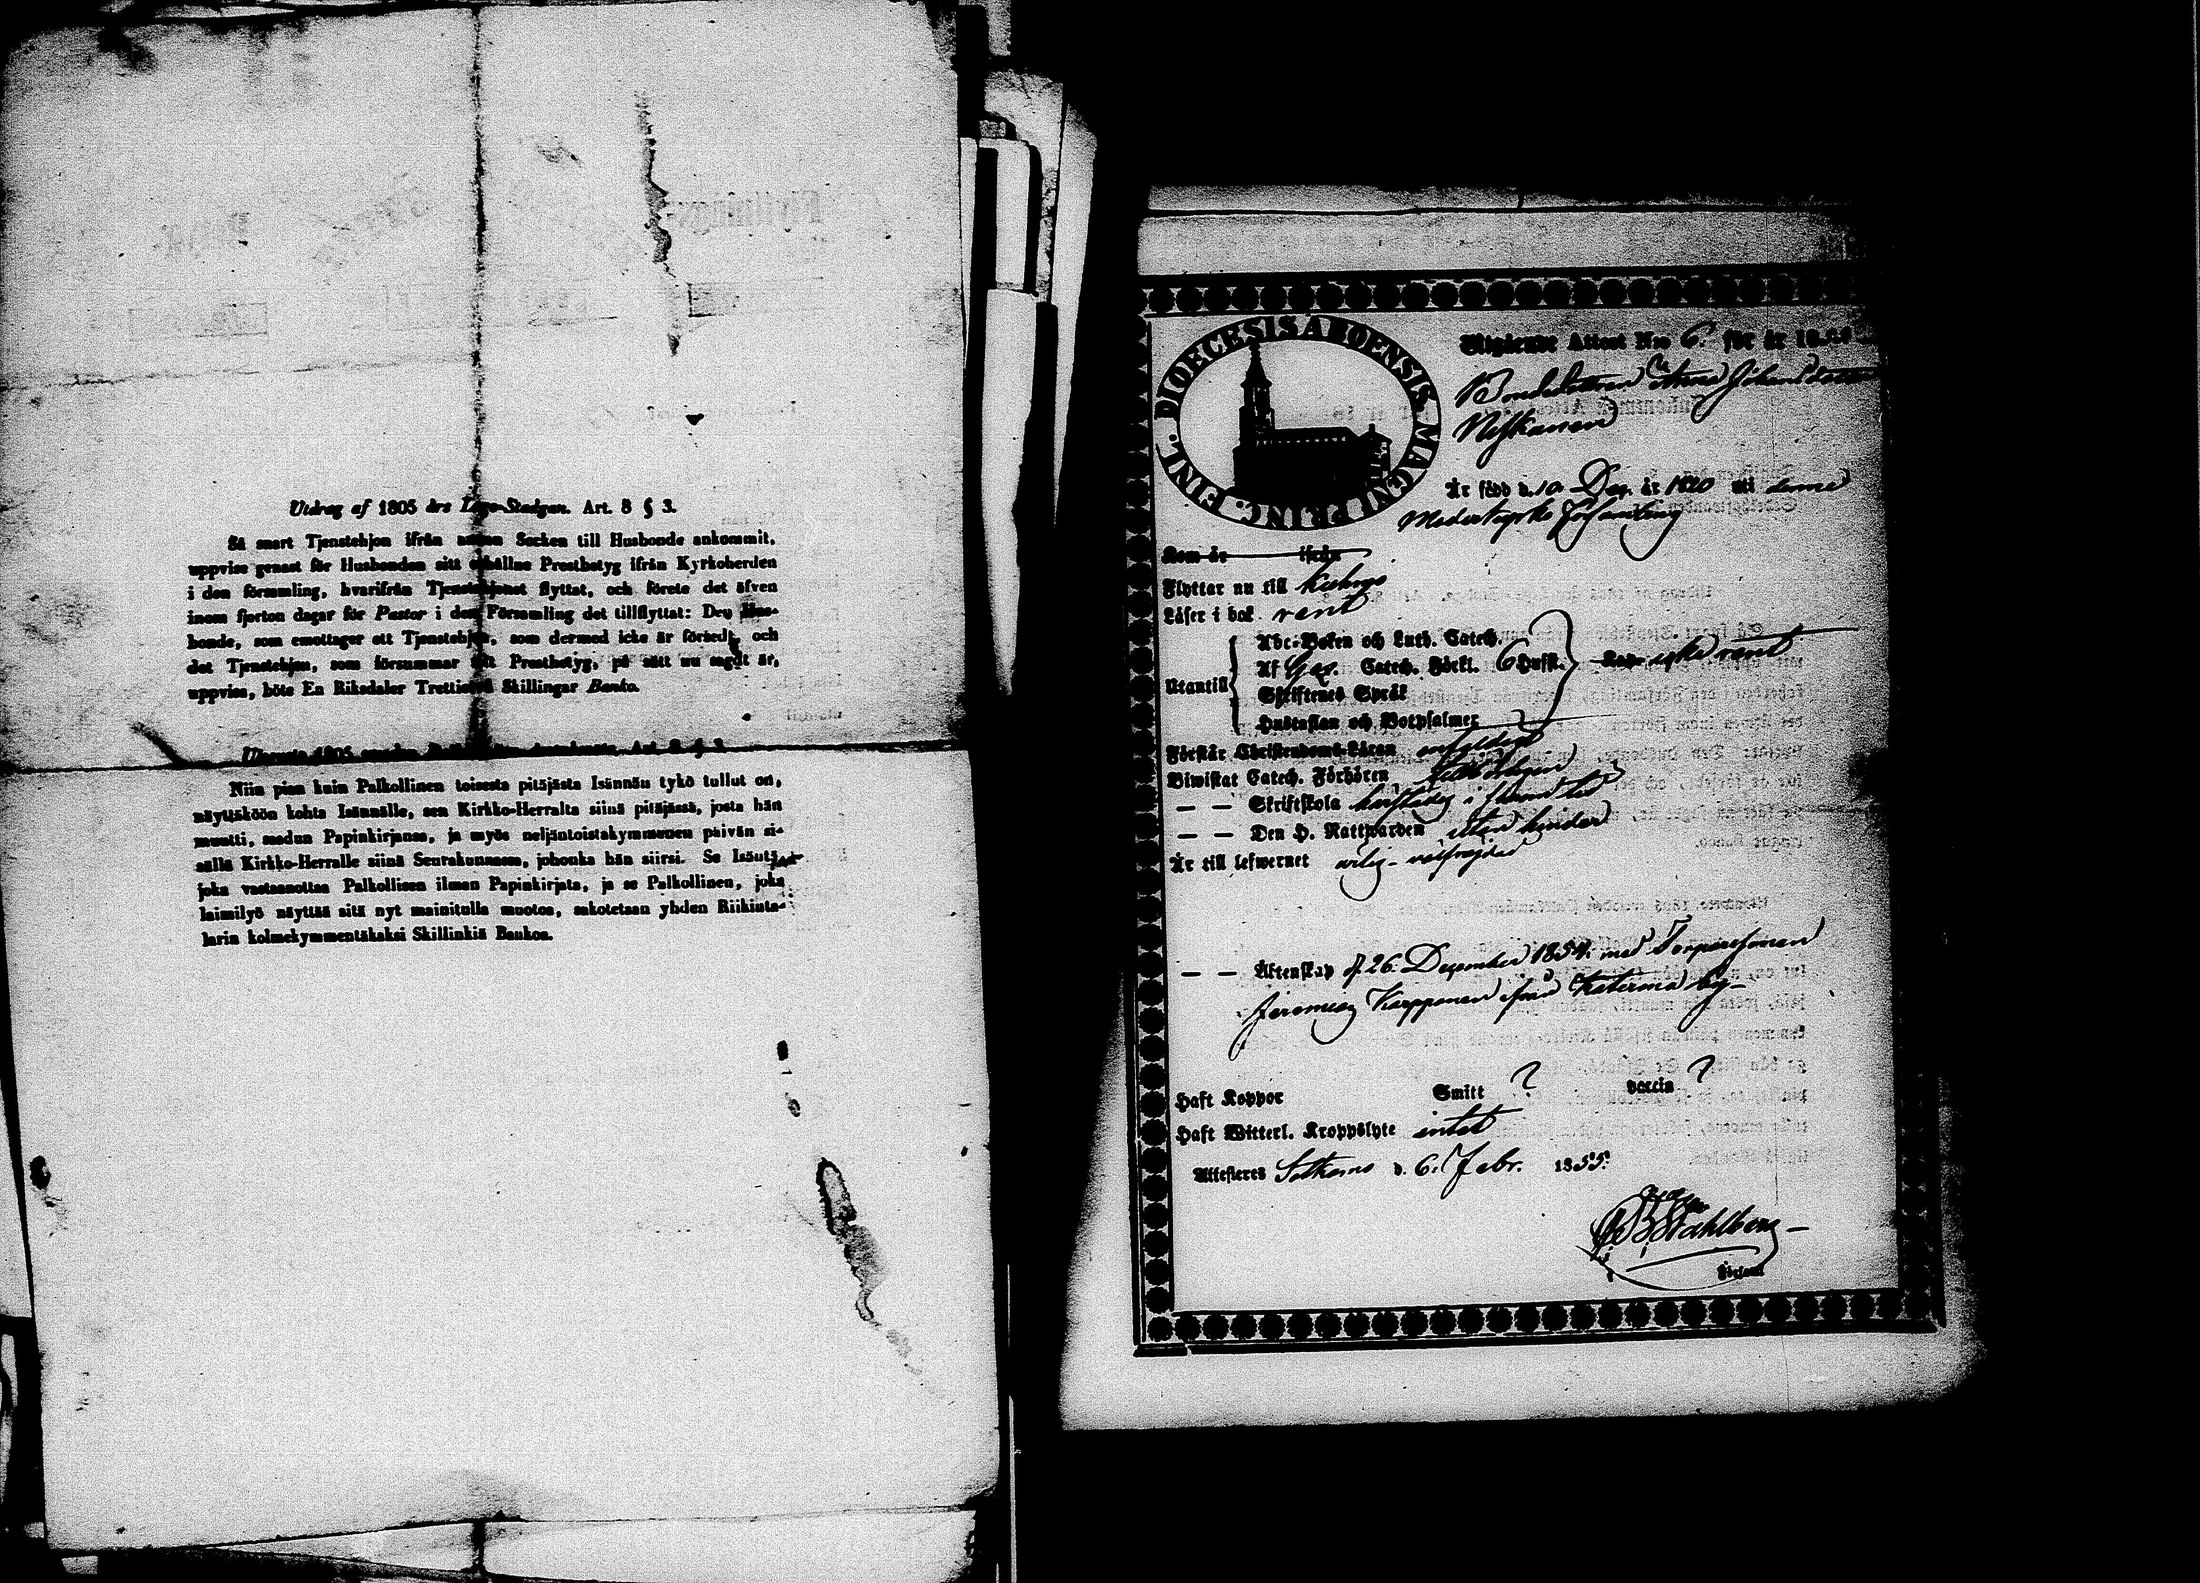 Utdrag af 1805 års Lego-Stadgan. Art. 8 § 3.
Så snart Tjenstehjon ifrån annan Socken till Husbonde ankommit,
uppvise genast för Husbonden sitt erhållne Prestbetyg ifrån Kyrkoherden
i den församling, hvarifrån Tjenstehjonet flyttat, och förete det äfven
inom fjorton dagar för Pastor i den Församling det tillflyttat: Den Hus-
bonde, som emottager ett Tjenstehjon, som dermed icke är försedt, och
det Tjenstehjon, som försummar sitt Prestbetyg, på sätt nu sagdt är,
uppvisa, böte En Riksdaler Trettiotvå Skillingar Banko.
1805 Art. 8 § 3.
Niin pian kuin Palkollinen toisesta pitäjästä Isännän tykö tullut on,
näyttäköön kohta Isännälle, sen Kirkko-Herralta siinä pitäjässä, josta hän
muutti, saadun Papinkirjansa, ja myös neljäntoistakymmenen päivän si-
sällä Kirkko-Herralle siinä Seurakunnassa, johonka hän siirsi. Se Isäntä,
joka vastaanottaa Palkollisen ilman Papinkirjata, ja se Palkollinen, joka
laimilyö näyttää sitä nyt mainitulla muotoa, sakotetaan yhden Riikinta-
larin kolmekymmentäkaksi Skillinkiä Bankoa.
FINL. DIOECESIS ABOENSIS MAGNI PRINC.
Utgifende Attest Nro 6. för år 18
Bondedottren Anna Johansdotter
Neskanen
Är född d. 10. Dez. år 1820 uti denna
Moderkyrko församling
Kom år ifrån
Flyttar nu till Kuhmo
Läser i bok rent
Utantill
Abc-Boken och Luth. Catech.
Af Catech. Förkl. 6 Hufst. icke rent
Skriftenes Språk
Hustaflan och Botpsalmer
Förstår Christendoms-Läran enfaldigt
Biwistat Catech. Förhören
— — Skriftskola
— — Den H. Nattwarden utan hinder
Är till lefwernet ärlig – välfrejdad
— — Äktenskap d. 26. December 1854. med Torparesonen
Jeremias Karppanen ifrån Katerma by –
Haft Koppor Smitt ? vaccin ?
Haft Witterl. Kroppslyte intet
Attesteras Sotkamo d. 6. Febr. 1855.
Stahlberg –